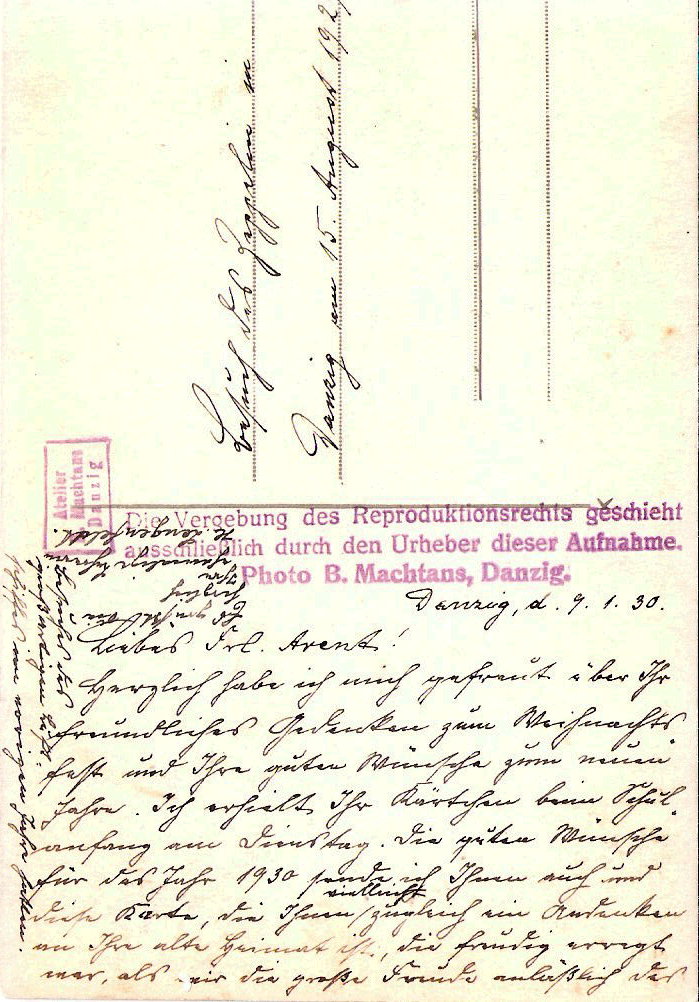 Besuch des Zeppelin in
Danzig am 15. August 192
Atelier
Machtans
Danzig
Die Vergebung des Reproduktionsrechts geschieht
ausschließlich durch den Urheber dieser Aufnahme.
Photo B. Machtans, Danzig.
Danzig, d. 9. 1. 30.
Liebes Frl. Arent!
Herzlich habe ich mich gefreut über Ihr
freundliches Gedenken zum Weihnachts
fest und Ihre guten Wünsche zum neuen
Jahre. Ich erhielt Ihr Kärtchen beim Schul-
anfang am Dienstag. Die guten Wünsche
für das Jahr 1930 sende ich Ihnen auch und
diese Karte, die Ihnen vielleicht zugleich ein Andenken
an Ihre alte Heimat ist, die freudig erregt
war, als wir die große Freude anläßlich des
Besuches des
großartigen Luft-
schiffes im vorigen Jahre hatten.
Es grüßt Sie
herzlich
Ihre
Lehrerin